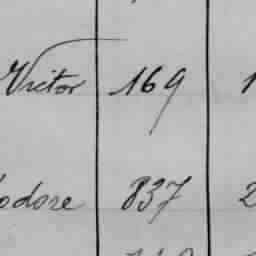 Victor 169 1
odore 837 2